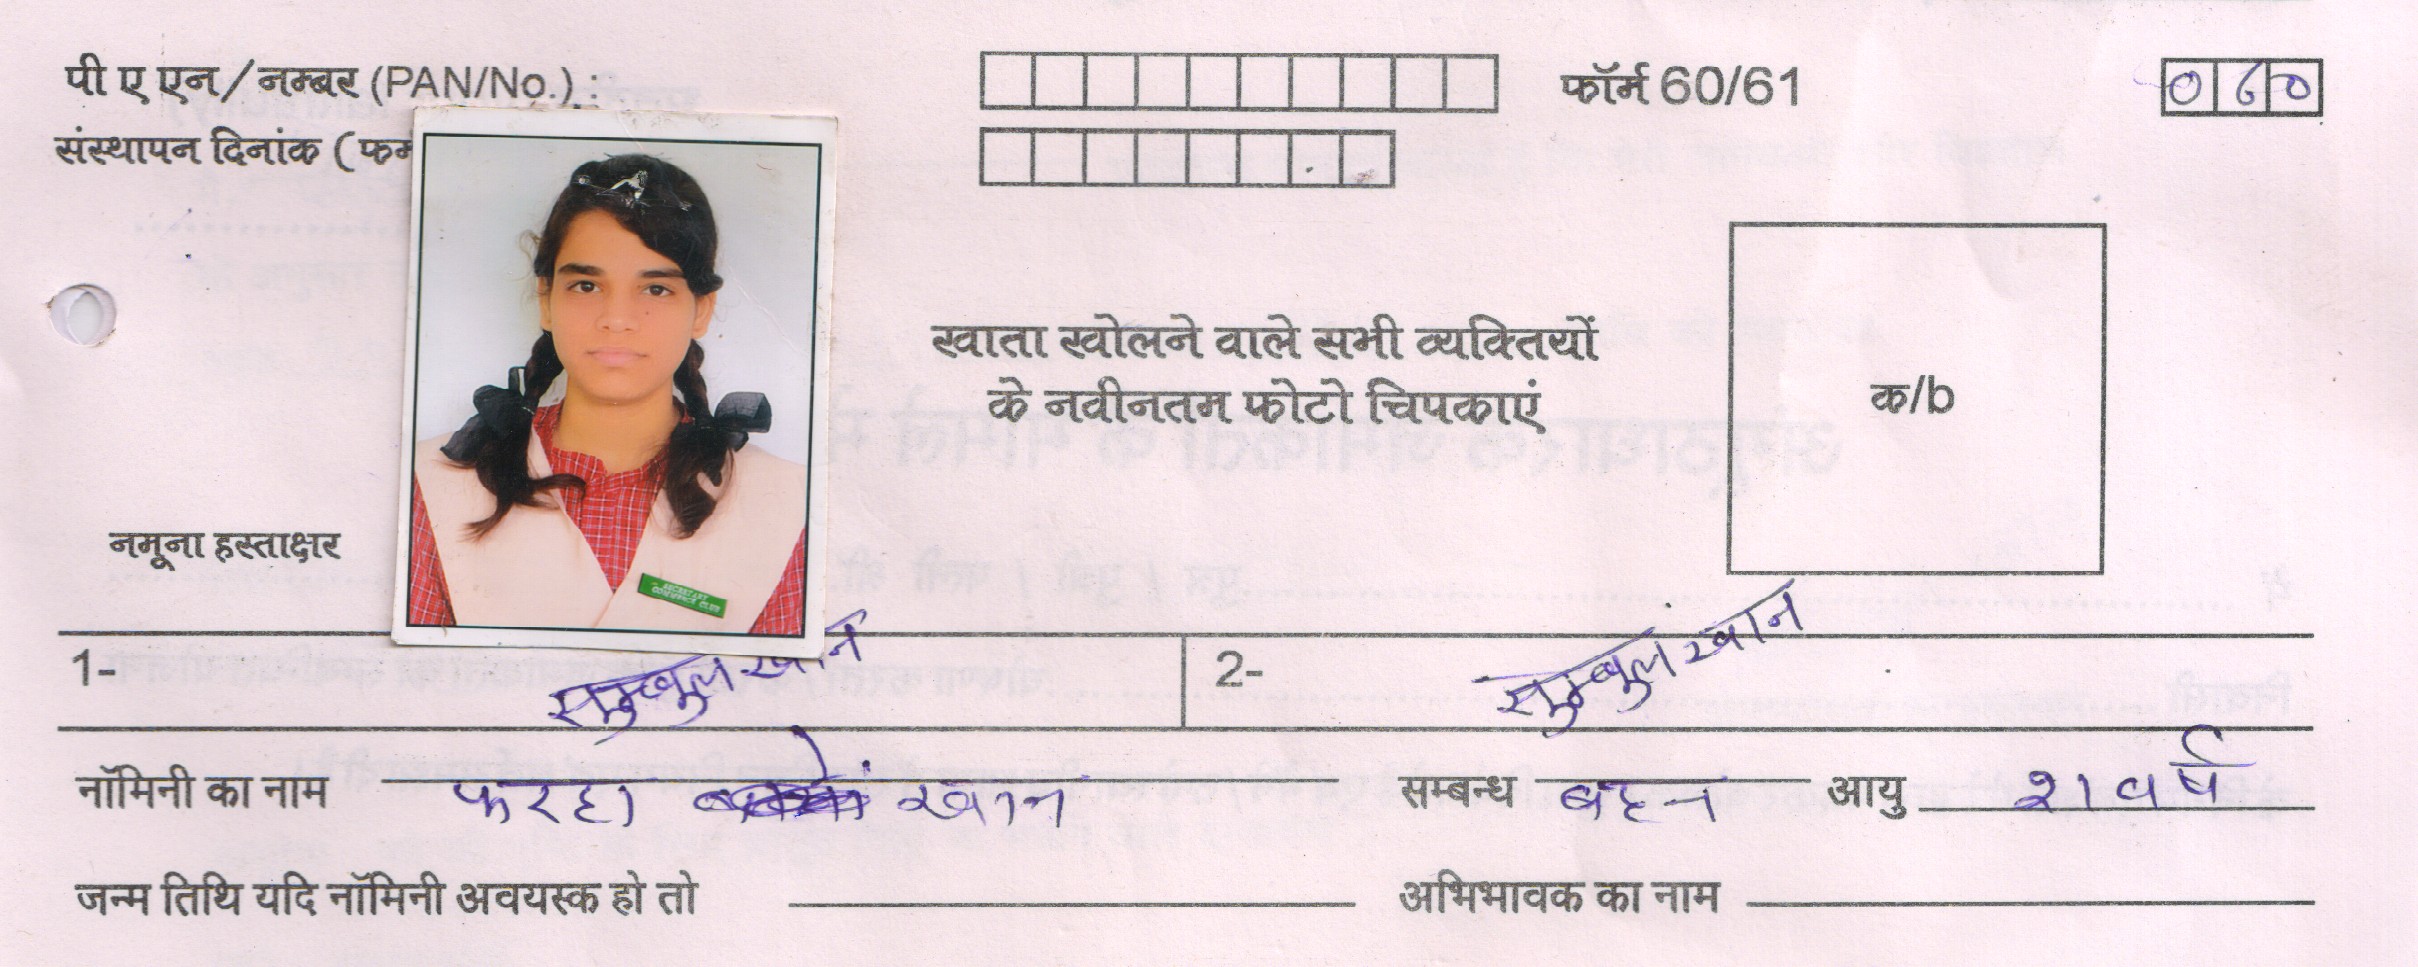 पी ए एन/नम्बर (PAN/No.) : फॉर्म 60/61 060
संस्थापन दिनांक (फर्म
खाता खोलने वाले सभी व्यक्तियों
के नवीनतम फोटो चिपकाएं
क/b
नमूना हस्ताक्षर
SECRETARY
COMMERCE CLUB
1- सुम्बुल खान 2- सुम्बुल खान
नॉमिनी का नाम फरहा खान सम्बन्ध बहन आयु २१ वर्ष
जन्म तिथि यदि नॉमिनी अवयस्क हो तो अभिभावक का नाम